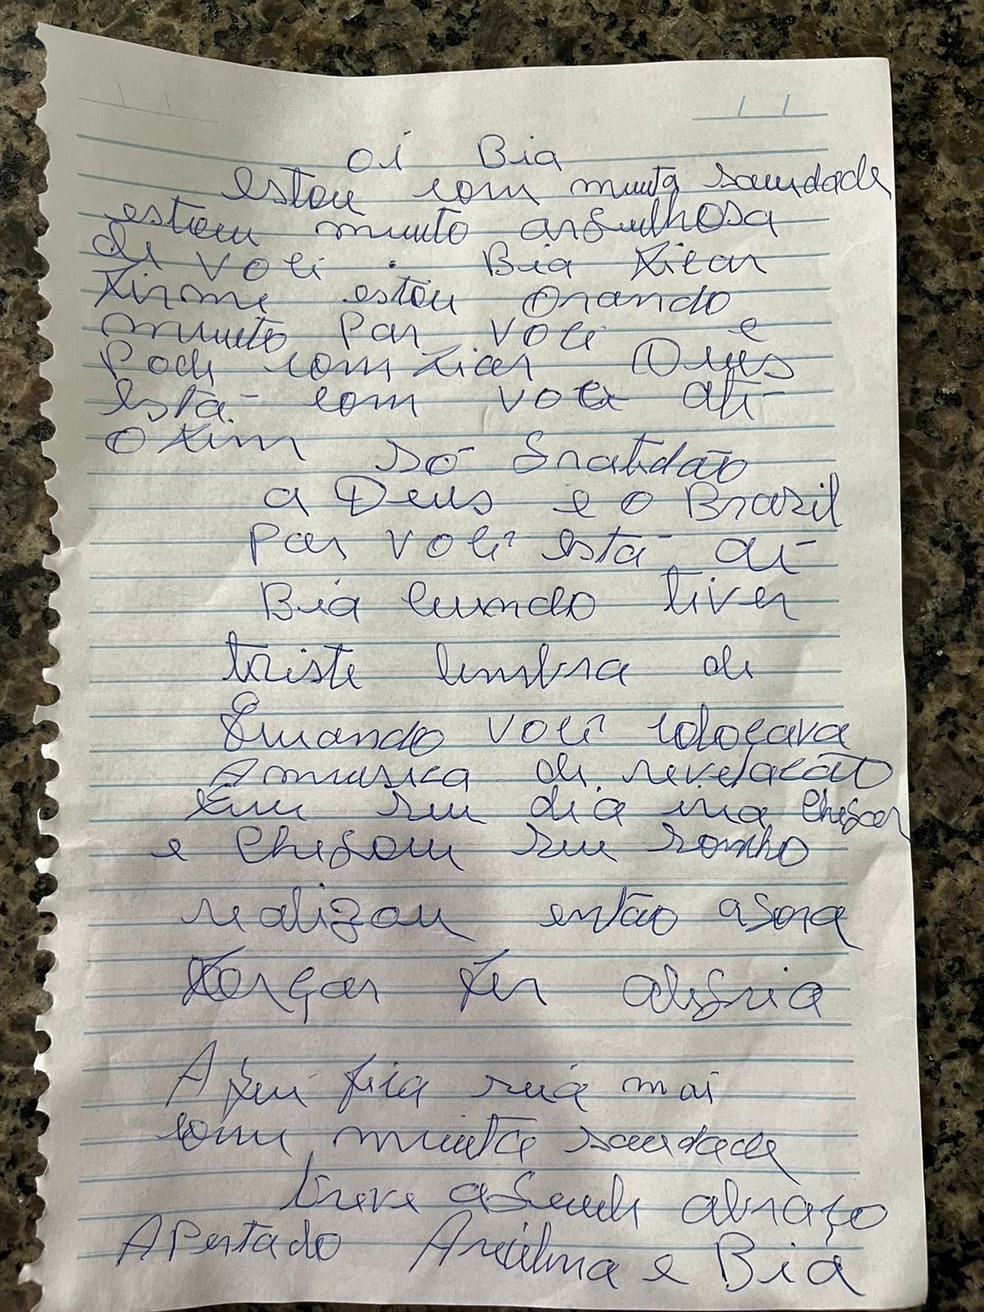 oi Bia
estou com muita saudade
estou muito orgulhosa
de voce . Bia ficar
firme estou orando
muito por voce e
Pode comficar Deus
Está com voce até
o fim só gratidão
a Deus e o Brazil
por você está ai
Bia cuando tiver
triste lembra de
Quando você colocava
A musica de revelação
seu dia via chegar
e chegou seu sonho
realizou então agora
forçar fer alegria
Aqui fica sua mai
com muita saudade
breve aquele abraço
Apertado Arcilma e Bia